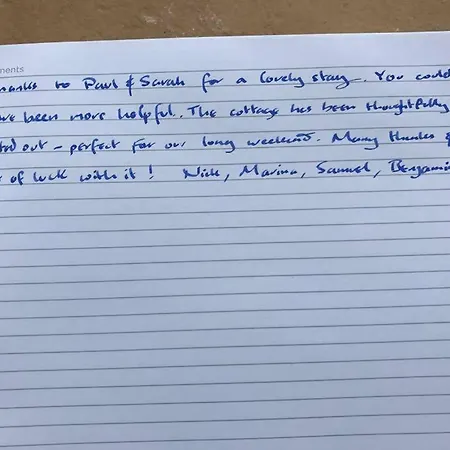 ments
hanks to Paul & Sarah for a lovely stay. You could
ve been more helpful. The cottage has been thoughtfully
ted out - perfect for our long weekend. Many thanks &
of luck with it! Nick, Marina, Samuel, Benjamin